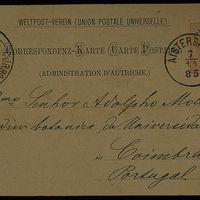 WELTPOST-VEREIN (UNION POSTALE UNIVERSELLE)
CORRESPONDENZ-KARTE (CARTE POSTALE
(ADMINISTRATION D'AUTRICHE)
7
85
Senhor Adolpho
botanico da Universidade
in Coimbra
Portugal